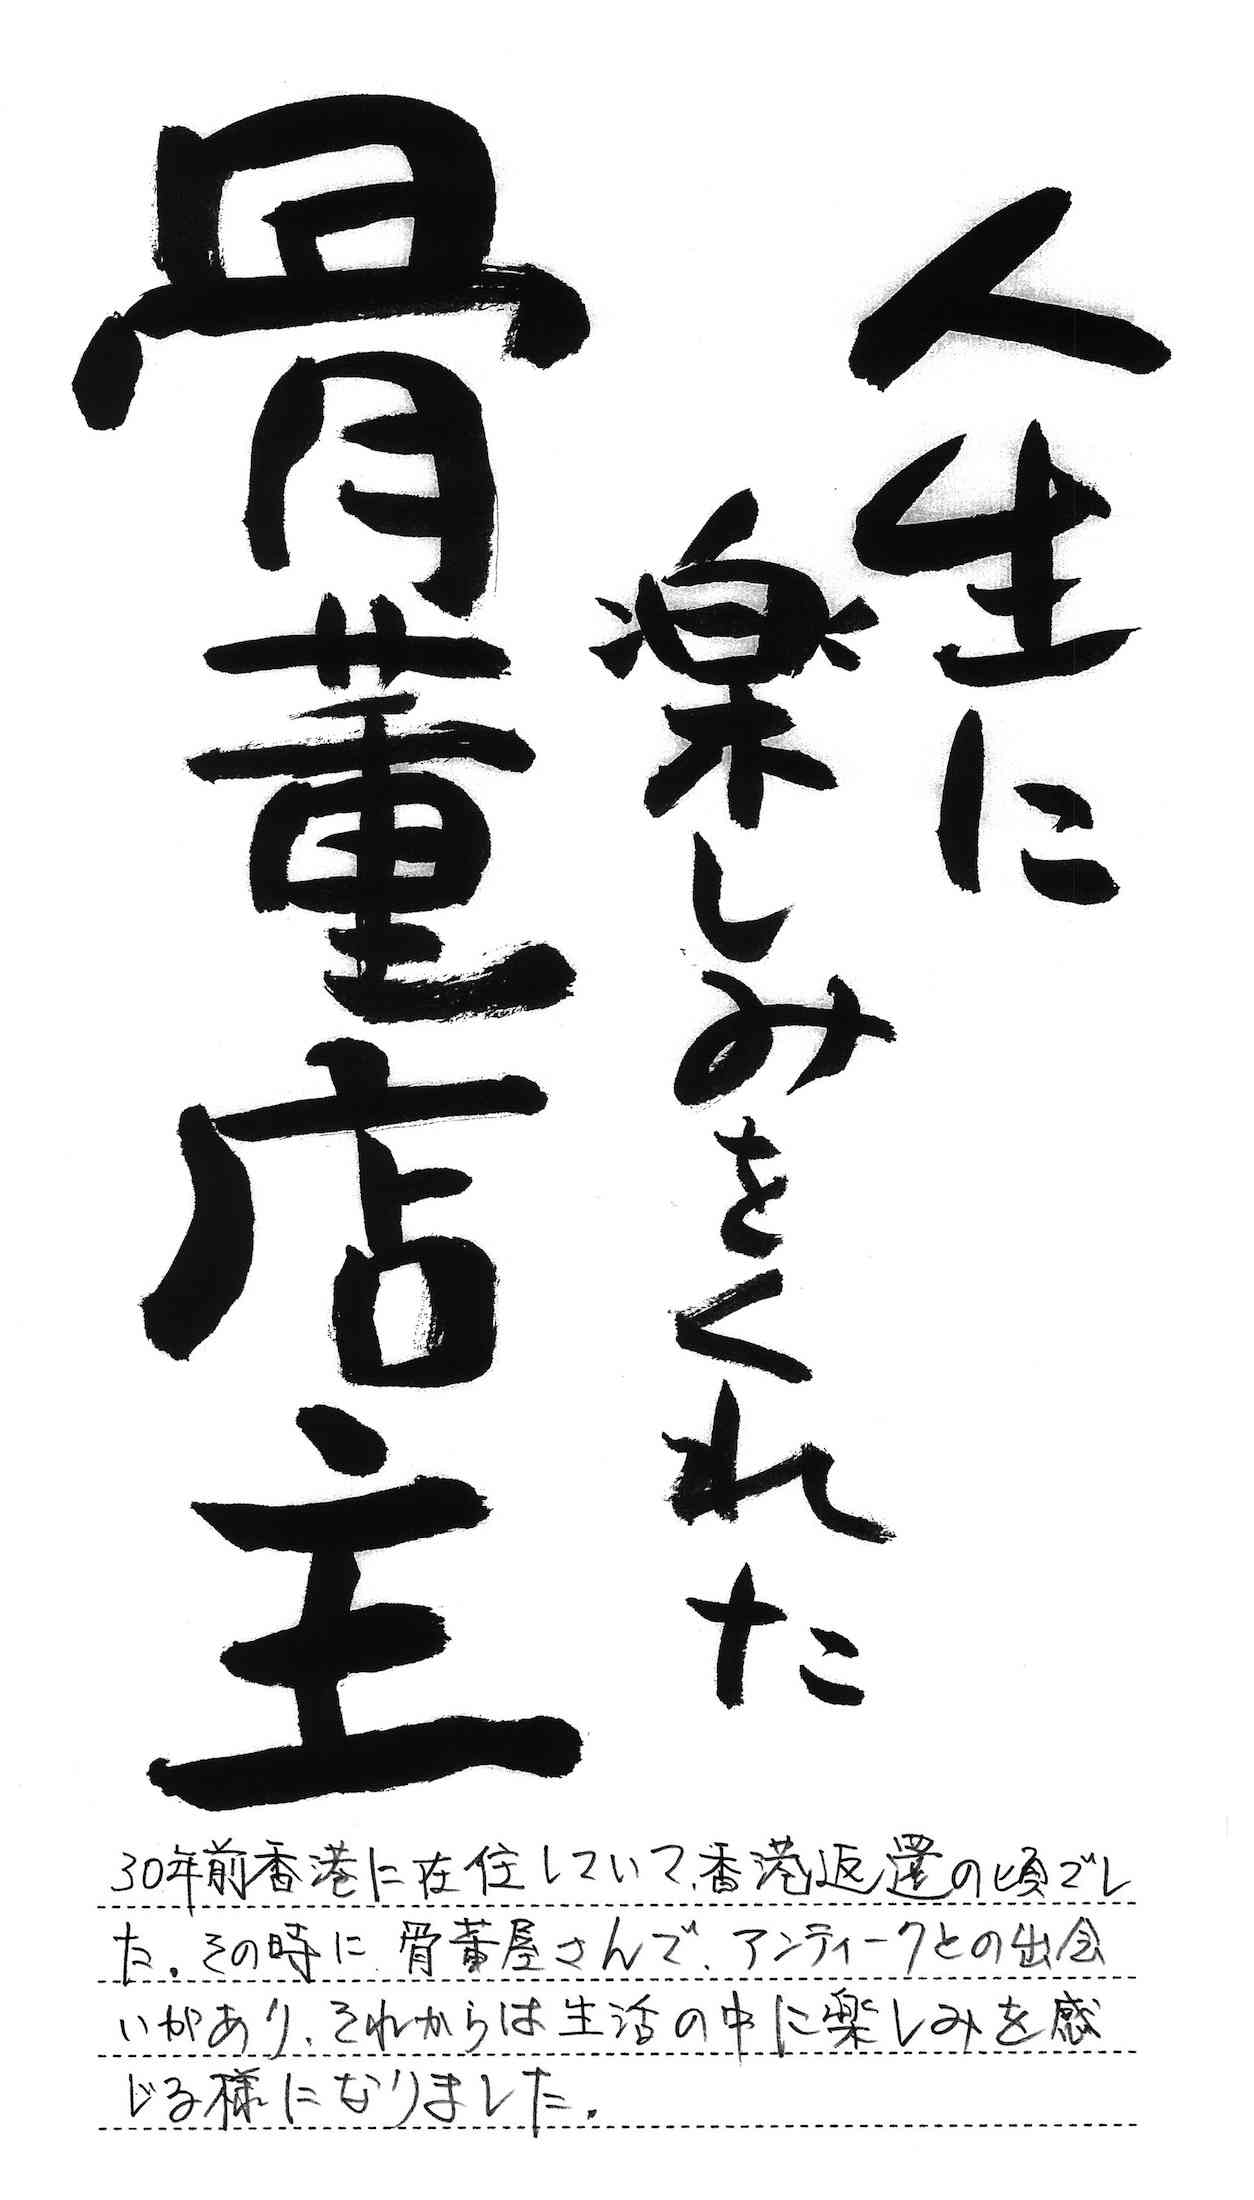 人生に
楽しみをくれた
骨董店主
30年前香港に在住していて、香港返還の頃でし
た。その時に骨董屋さんで、アンティークとの出会
いがあり、それからは生活の中に楽しみを感
じる様になりました。